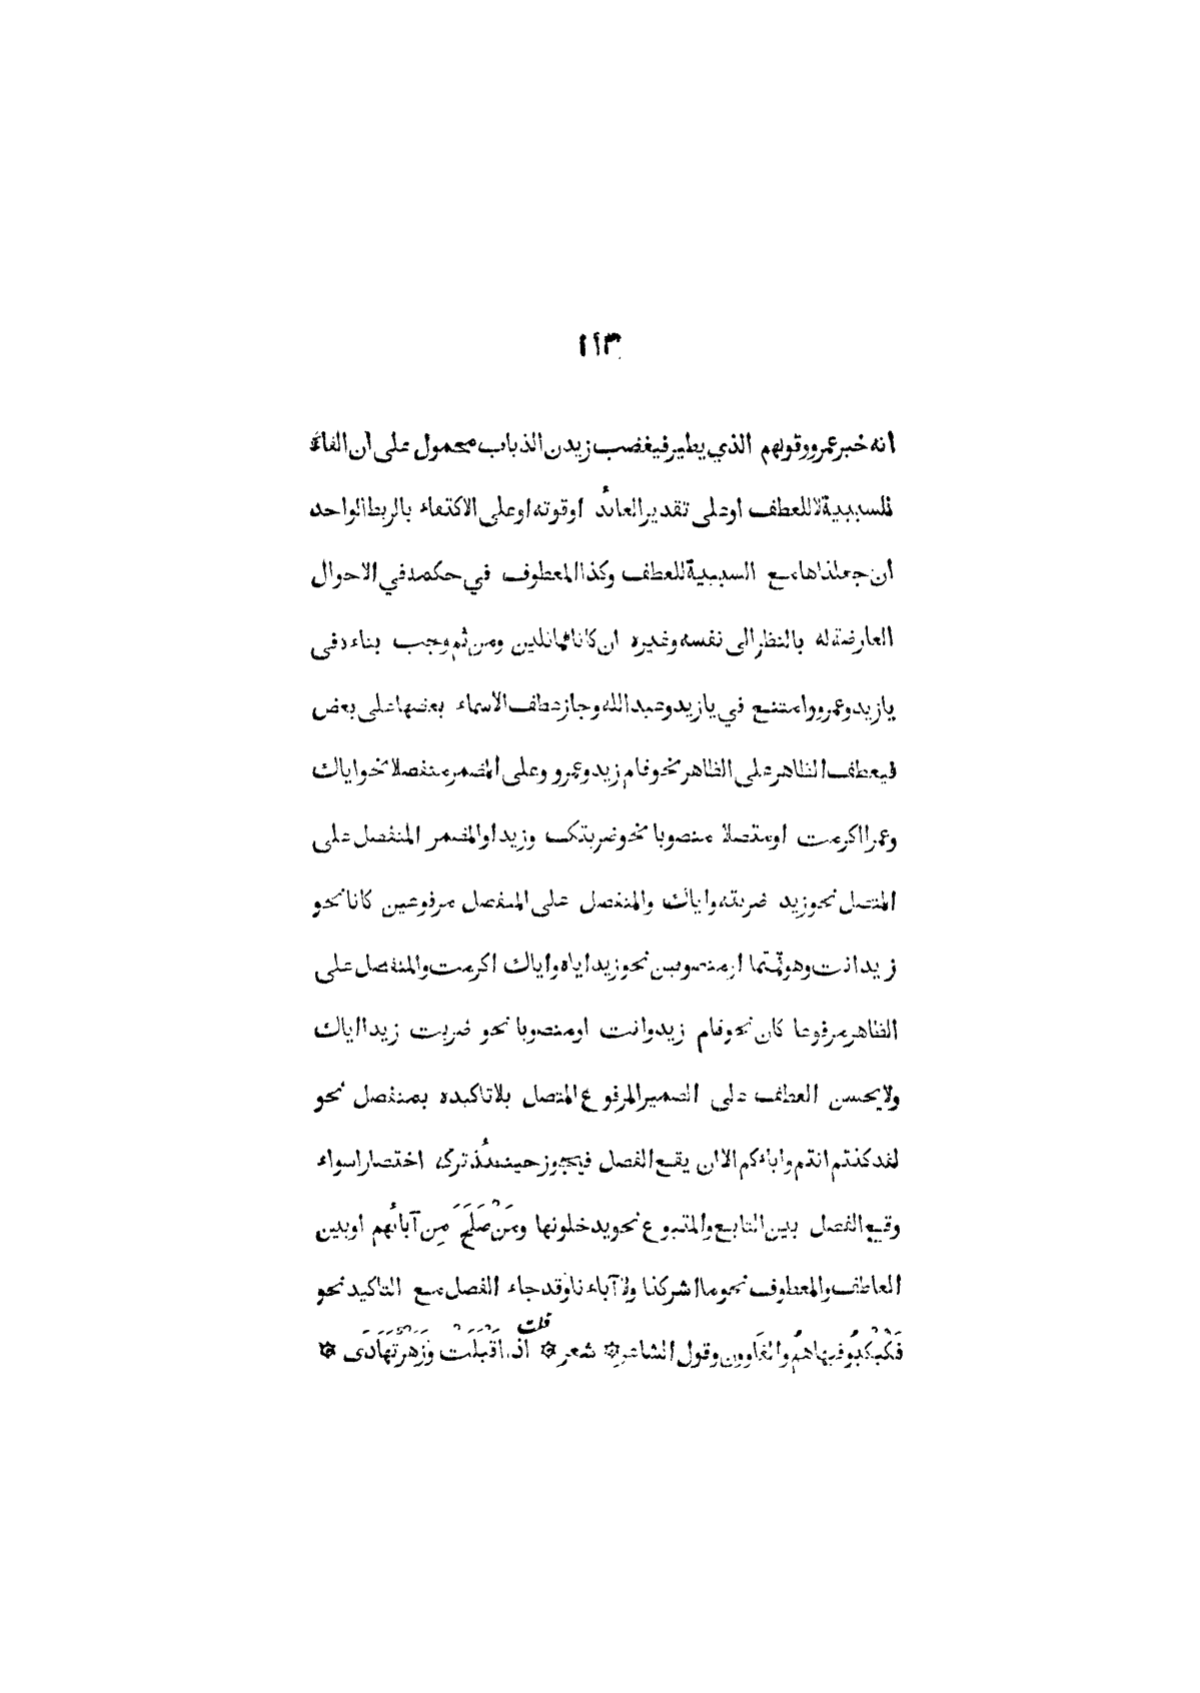 ١١٣
انه خبر عمرو وقولهم الذي يطير فيغضب زيدن الذباب محمول على ان الفاء
للسببية لا للعطف او على تقدير العائد او قوته او على الاكتفاء بالربط الواحد
ان جعلناها مع السببية للعطف وكذا المعطوف في حكمه في الاحوال
العارضة له بالنظر الى نفسه وغيره ان كانا مماثلين ومن ثم وجب بناءه فى
يا زيد وعمرو وامتنع في يا زيد وعبد الله وجاز عطف الاسماء بعضها على بعض
فيعطف الظاهر على الظاهر نحو قام زيد وعمرو وعلى المضمر منفصلا نحو اياك
وعمرا اكرمت او متصلا منصوبا نحو ضربتك وزيدا والمضمر المنفصل على
المتصل نحو زيد ضربته واياك والمنفصل على المنفصل مرفوعين كانا نحو
زيد انت وهو قمتما او منصوبين نحو زيد اياه واياك اكرمت والمنفصل على
الظاهر مرفوعا كان نحو قام زيد وانت او منصوبا نحو ضربت زيدا اياك
ولا يحسن العطف على الضمير المرفوع المتصل بلا تاكيده بمنفصل نحو
لقد كنتم انتم واباءكم الا ان يقع الفصل فيجوز حينئذ تركه اختصارا سواء
وقع الفصل بين التابع والمتبوع نحو يدخلونها وَمَنْ صَلَحَ مِن آبائهم او بين
العاطف والمعطوف نحو ما اشركنا ولا آباءنا وقد جاء الفصل مع التاكيد نحو
فَكُبْكِبُو فيها هُم والغَاوون وقول الشاعر ۞ شعر ۞ قلت اذ اَقْبَلَتْ وَزَهْرٌ تَهَادَى ۞